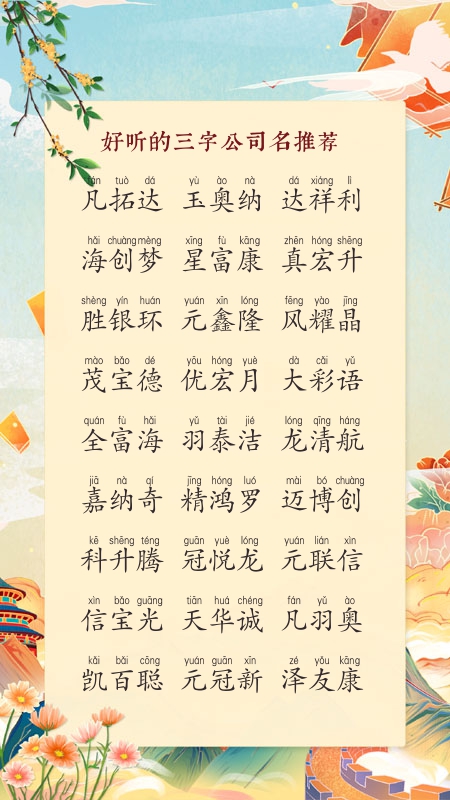 好听的三字公司名推荐
fán tuò dá yù ào nà dá xiáng lì
凡拓达 玉奥纳 达祥利
hǎi chuàng mèng xīng fù kāng zhēn hóng shēng
海创梦 星富康 真宏升
shèng yín huán yuán xīn lóng fēng yào jīng
胜银环 元鑫隆 风耀晶
mào bǎo dé yōu hóng yuè dà cǎi yǔ
茂宝德 优宏月 大彩语
quán fù hǎi yǔ tài jié lóng qīng háng
全富海 羽泰洁 龙清航
jiā nà qí jīng hóng luó mài bó chuàng
嘉纳奇 精鸿罗 迈博创
kē shēng téng guān yuè lóng yuán lián xìn
科升腾 冠悦龙 元联信
xìn bǎo guāng tiān huá chéng fán yǔ ào
信宝光 天华诚 凡羽奥
kǎi bǎi cōng yuán guān xīn zé yǒu kāng
凯百聪 元冠新 泽友康